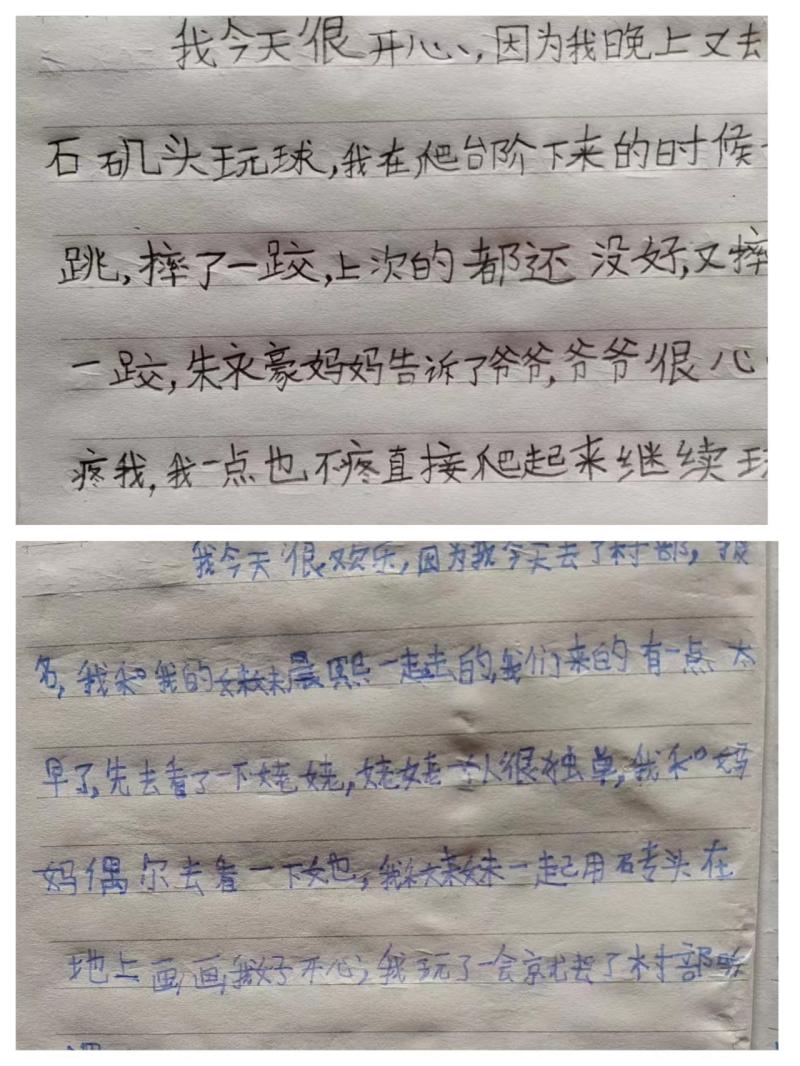 我今天很开心，因为我晚上又去
石矶头玩球，我在爬台阶下来的时候
跳，摔了一跤，上次的都还没好，又摔
一跤，朱永豪妈妈告诉了爷爷，爷爷很心
疼我，我一点也不疼直接爬起来继续玩
我今天很欢乐，因为我今天去了村部，报
名，我和我的妹妹晨熙一起去的，我们来的有一点太
早了，先去看了一下姥姥，姥姥一个人很独单，我和妈
妈偶尔去看一下她，我和妹妹一起用砖头在
地上画画，我好开心，我玩了一会就去了村部听
课